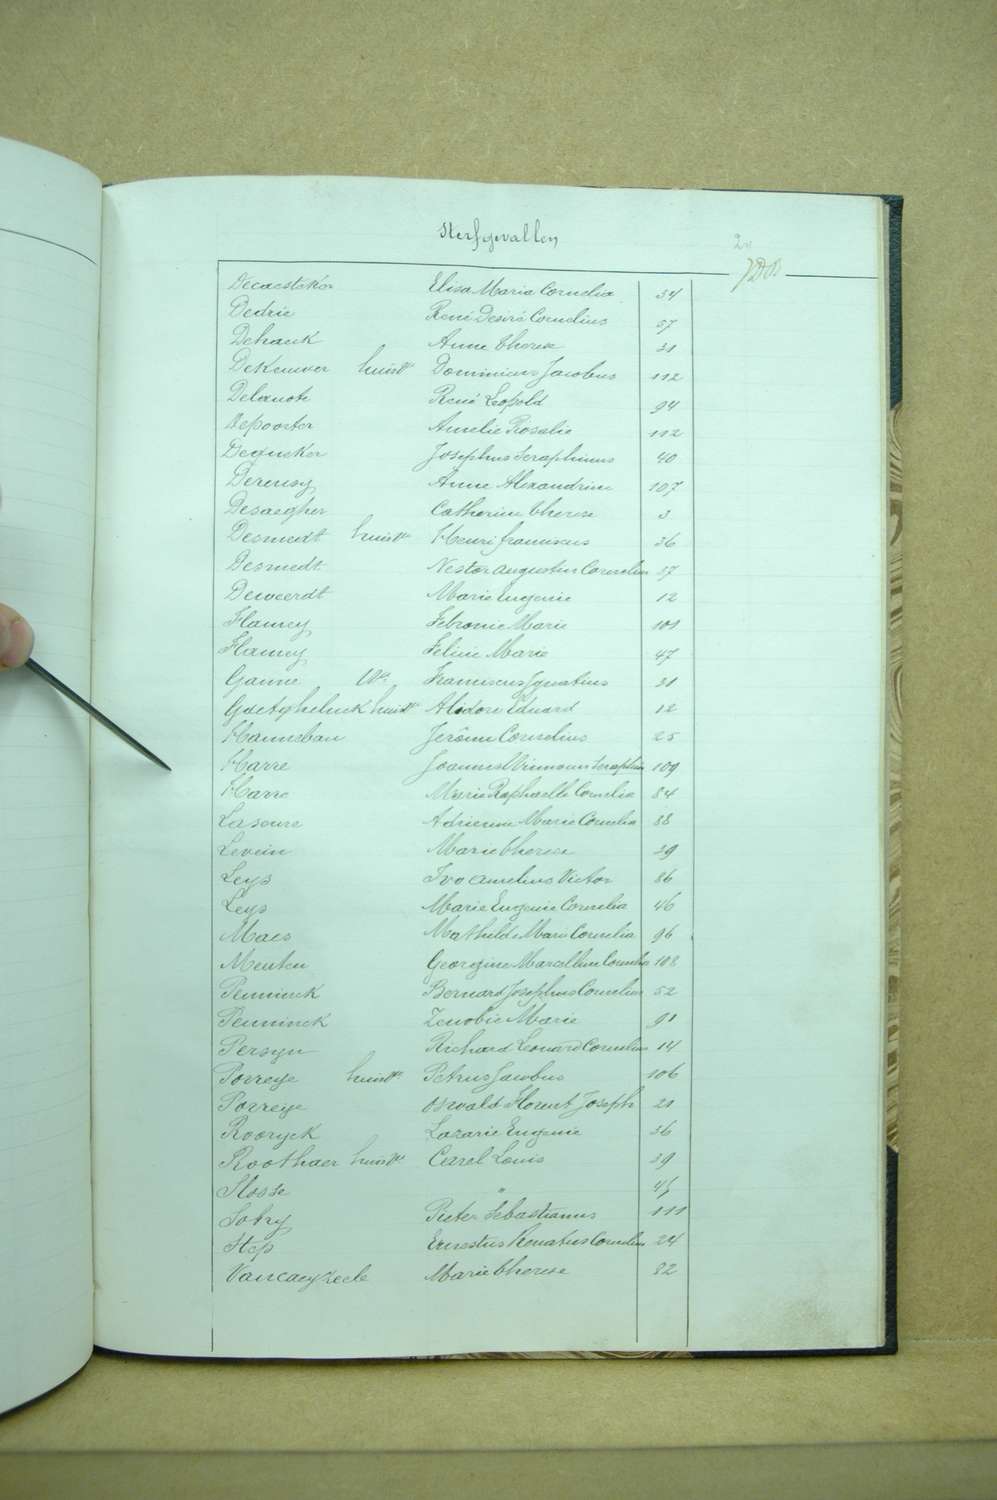 Sterfgevallen
Decaesteker Elisa Maria Cornelia 34
Dedrie René Desiré Cornelius 57
Dehauk Anne Therese 31
DeKeuwer huisvr Dominicus Jacobus 112
Delanote René Leopold 94
Depoorter Amelie Rosalie 112
Dequeker Josephus Seraphinus 40
Derensy Anne Alexandrine 107
Desaegher Catherine Therese 3
Desmedt huisvr Henri franciscus 36
Desmedt Nestor Augustin Cornelius 37
Deweerdt Marie Eugenie 12
Flamey Febronie Marie 101
Flamey Felicie Marie 47
Ganne We Franciscus Ignatius 31
Gdetgheluck huisvr Alidore Eduard 12
Hannebau Jerôme Cornelius 25
Harre Joannes Seraphin 109
Harre Marie Raphaelle Cornelia 84
Laseure Adrienne Marie Cornelia 88
Levein Marie Therese 39
Leys Ivo Aurelius Victor 86
Leys Marie Eugenie Cornelia 46
Maes Mathilde Marie Cornelia 96
Meuten Georgine Marcelline Cornelia 108
Penninck Bernard Josephus Cornelius 52
Penninck Zenobie Marie 91
Persyn Richard Leonard Cornelius 14
Porreye huisvr Petrus Jacobus 106
Porreye Oswald Florent Joseph 21
Rooryck Lazarie Eugenie 36
Roothaer huisvr Carel Louis 39
Slosse " 45
Sobry Pieter Sebastianus 111
Step Ernestus Renatus Cornelius 24
Vancaeyzeele Marie Therese 82